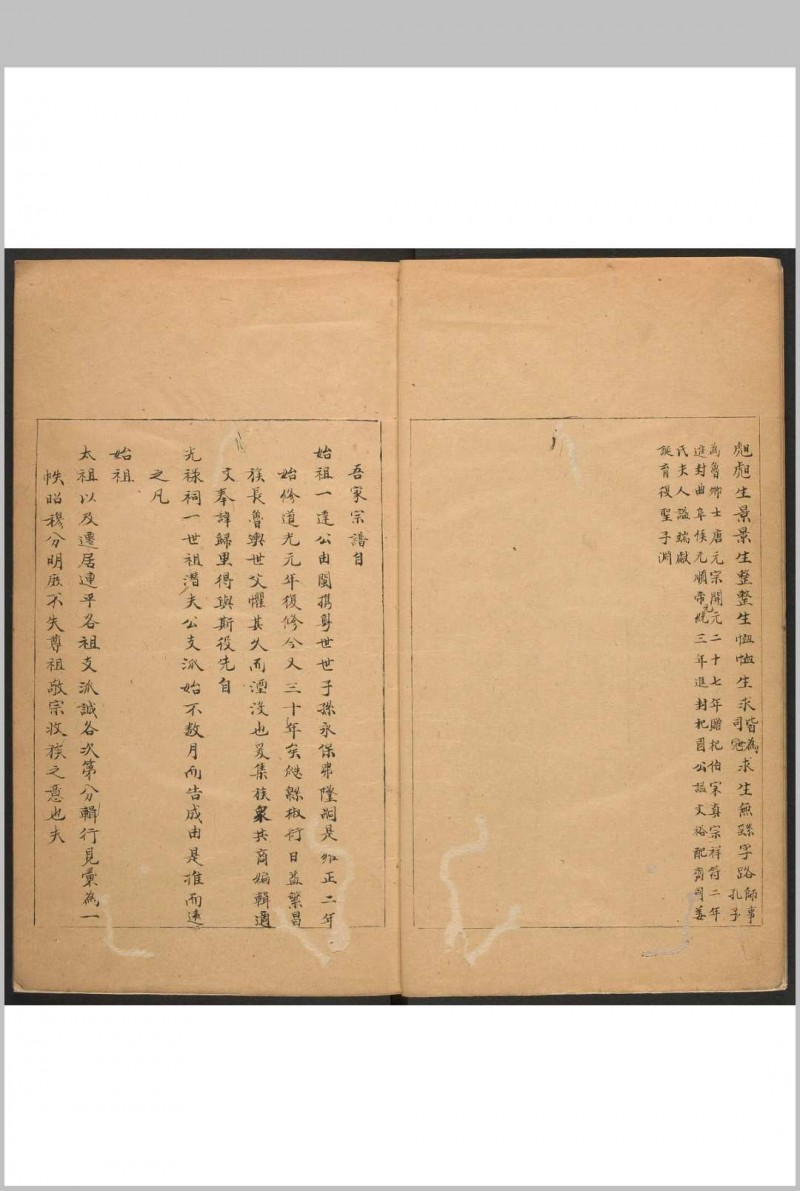 彪彪生景景生整整生恤恤生求皆為司寇求生無繇字路師事孔子
為魯卿士唐元宗開元二十七年贈杞伯宋真宗祥符二年
進封曲阜侯元順帝元統三年進封杞國公諡文裕配齊司姜
氏夫人諡端獻
誕育復聖子淵
吾家宗譜自
始祖一達公由閩攜眷世世子孫永保弗墜嗣是雍正二年
始修道光元年復修今又三十年矣緜椒衍日益繁昌
族長魯輿世父懼其久而湮沒也爰集族衆共商編輯適
文奉諱歸里得與斯役先自
光祿祠一世祖潛夫公支派始不数月而告成由是推而遠
之凡
始祖
太祖以及遷居連平各祖支派誠各次第分輯行見彙為一
帙昭穆分明庶不失尊祖敬宗收族之意也夫